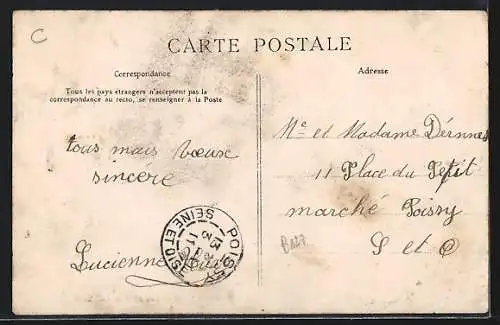 C
CARTE POSTALE
Correspondance
Adresse
Tous les pays étrangers n'acceptent pas la
correspondance au recto, se renseigner à la Poste
tous mais vœux
sincère
Lucienne
Me et Madame
11 Place du Petit
marché Poissy
S et O
POISSY
13
SEINE ET OISE